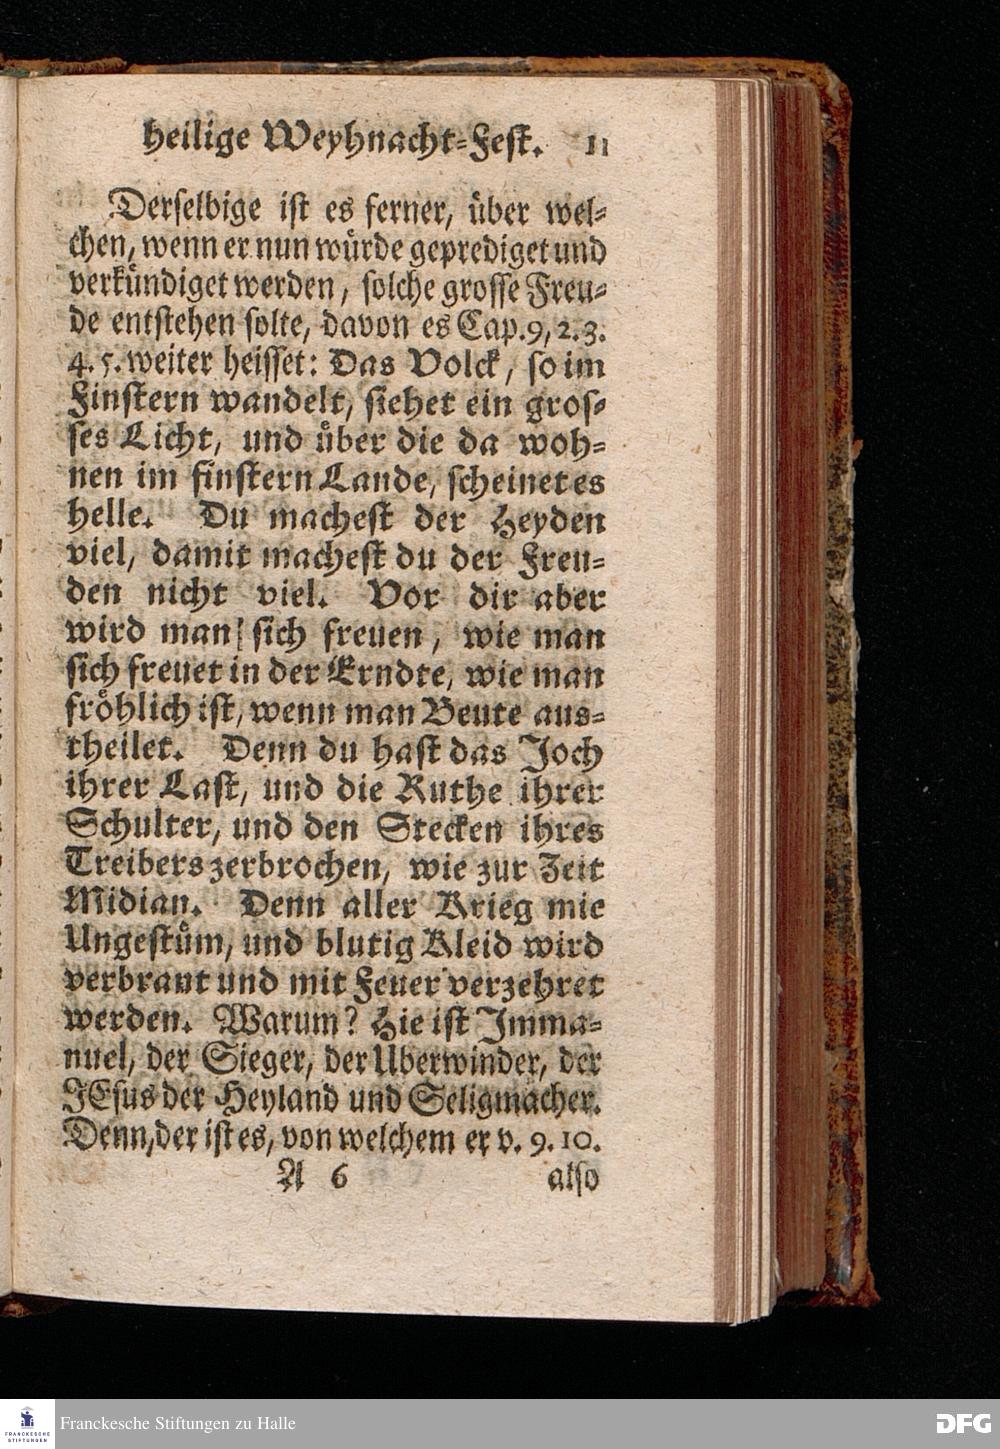 heilige Weyhnacht-Fest. 11
Derselbige ist es ferner, über wel-
chen, wenn er nun würde geprediget und
verkündiget werden, solche grosse Freu-
de entstehen solte, davon es Cap. 9, 2. 3.
4. 5. weiter heisset: Das Volck, so im
Finstern wandelt, siehet ein gros-
ses Licht, und über die da woh-
nen im finstern Lande, scheinet es
helle. Du machest der Heyden
viel, damit machest du der Freu-
den nicht viel. Vor dir aber
wird man sich freuen, wie man
sich freuet in der Erndte, wie man
fröhlich ist, wenn man Beute aus-
theilet. Denn du hast das Joch
ihrer Last, und die Ruthe ihrer
Schulter, und den Stecken ihres
Treibers zerbrochen, wie zur Zeit
Midian. Denn aller Krieg mit
Ungestüm, und blutig Kleid wird
verbrant und mit Feuer verzehret
werden. Warum? Hie ist Imma-
nuel, der Sieger, der Uberwinder, der
JEsus der Heyland und Seligmacher.
Denn, der ist es, von welchem er v. 9. 10.
A 6 also
Franckesche Stiftungen zu Halle
FRANCKESCHE
STIFTUNGEN
DFG